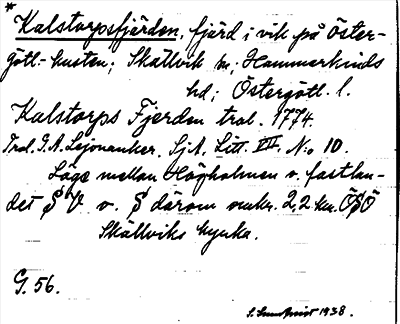 *
Kalstorpsfjärden, fjärd i vik på Öster-
götl.-kusten; Skällvik sn; Hammarkinds
hd; Östergötl. l.
Kalstorps Fjerden tral. 1774.
Tral. G. A. Lejonanker. SjA, Litt. VII, N:o 10.
Läge mellan Högholmen o. fastlan-
det S V o. S därom omkr. 2,2 km. ÖSÖ
Skällviks kyrka.
G. 56.
S. Sundqvist 1938.